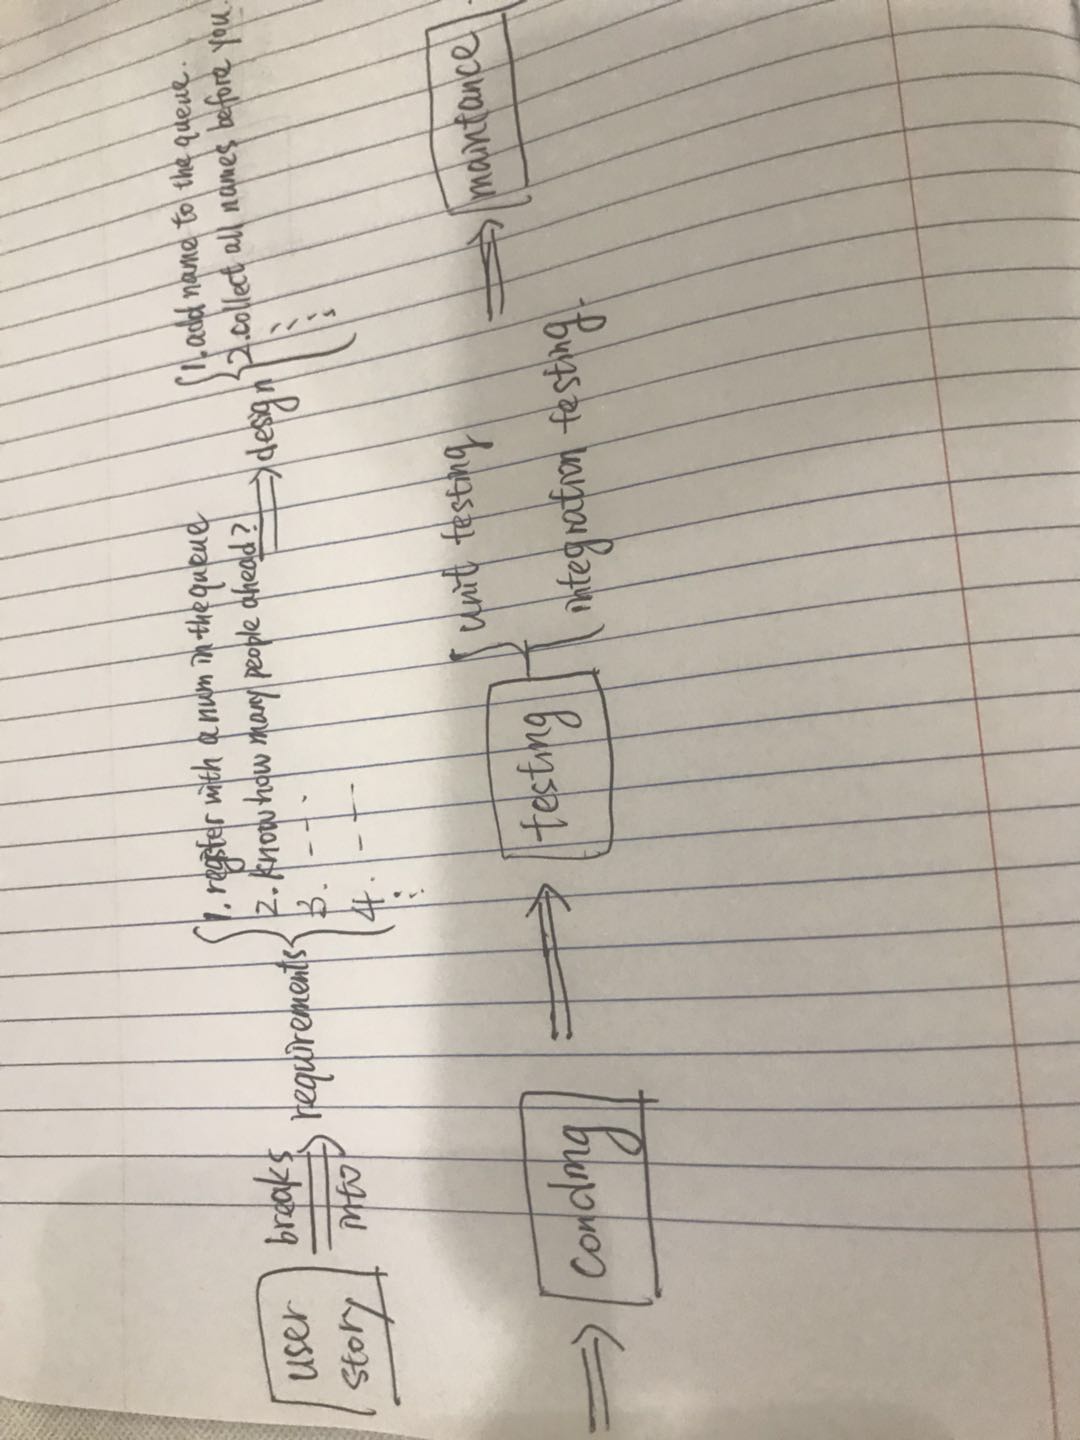 user story
breaks into
requirements
1. register with a num in the queue
2. know how many people ahead?
3. - - .
4. - -
design
1. add name to the queue.
2. collect all names before you.
conding
testing
unit testing
integration testing.
maintance